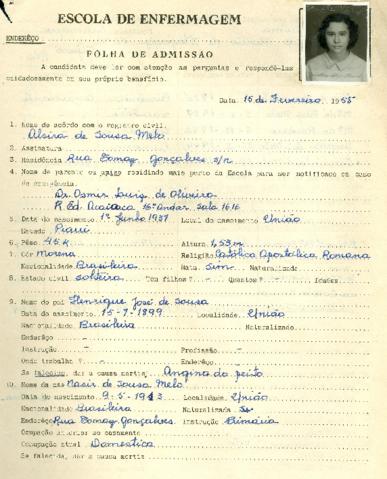 ESCOLA DE ENFERMAGEM
ENDERÊÇO
FÔLHA DE ADMISSÃO
A candidata deve ler com atenção as perguntas e respondê-las
cuidadosamente em seu próprio benefício.
Data, 15 de Fevereiro, 1955
1. Nome de acôrdo com o registro civil:
Alzira de Sousa Melo
2. Assinatura
3. Residência Rua Gonçalves s/n
4. Nome de parente ou amigo residindo mais perto da Escola para ser notificado em caso
de emergência.
Dr. Osmir Luiz de Oliveira
R. Ed. 15º Andar Sala 1616
5. Data do nascimento 1º Junho 1937 Local do nascimento União
Estado Piauí
6. Pêso 45 K Altura 1,53 m
7. Côr Morena Religião Católica Apostólica Romana
Nacionalidade Brasileira Nata Sim Naturalizada
8. Estado civil solteira Tem filhos? - Quantos? - Idades
9. Nome do pai Henrique José de Sousa
Data do nascimento 15-7-1899 Localidade União
Nacionalidade Brasileira Naturalizado
Enderêço
Instrução - Profissão -
Onde trabalha? - Enderêço
Se falecido, dar a causa mortis Angina do peito
10. Nome da mãe Nasir de Sousa Melo
Data do nascimento 9-5-1913 Localidade União
Nacionalidade Brasileira Naturalizada
Enderêço Rua Gonçalves Instrução Primária
Ocupação anterior ao casamento
Ocupação atual Domestica
Se falecida, dar a causa mortis